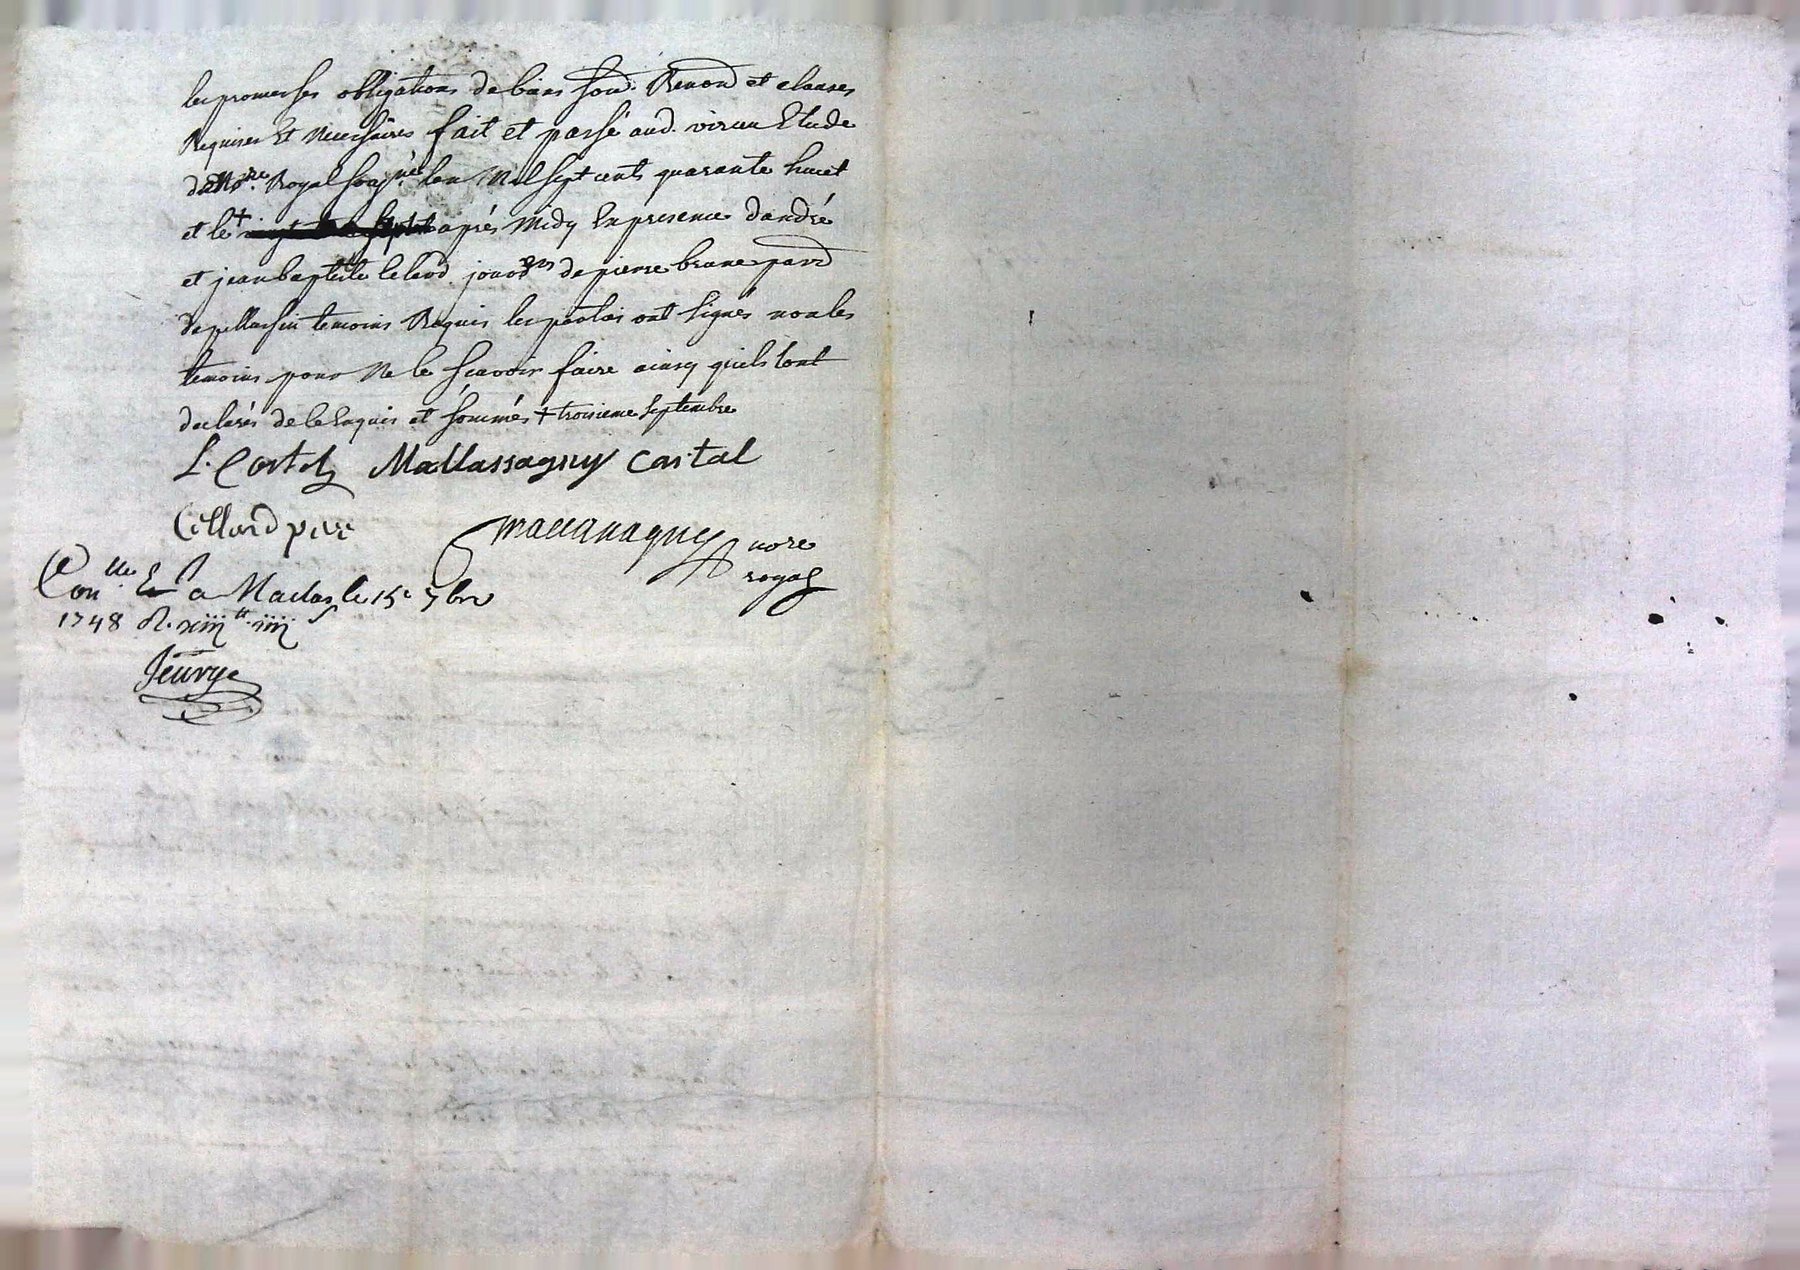 les promesses obligations de biens soub. Renond et clauses
Requises Et Necessaires fait et passé aud. virieu Etude
du No.re Royal soug.né l'an Mil sept cents quarante huict
et le + après Midy En presence d'andré
et jean baptiste jour.ers de pierre brune par.d
de pellussin temoins Requis les parties ont signés non les
temoins pour Ne le scavoir faire ainsy quils l'ont
declarés de ce Enquis et sommés + troisieme septembre
L. Costel Mallassagny Costal
Cellard pere
Mallassagny nore
royal
Con.lle E a Maclas le 15e 7bre
1748 R. xiiij tt iiij s
Jeurye